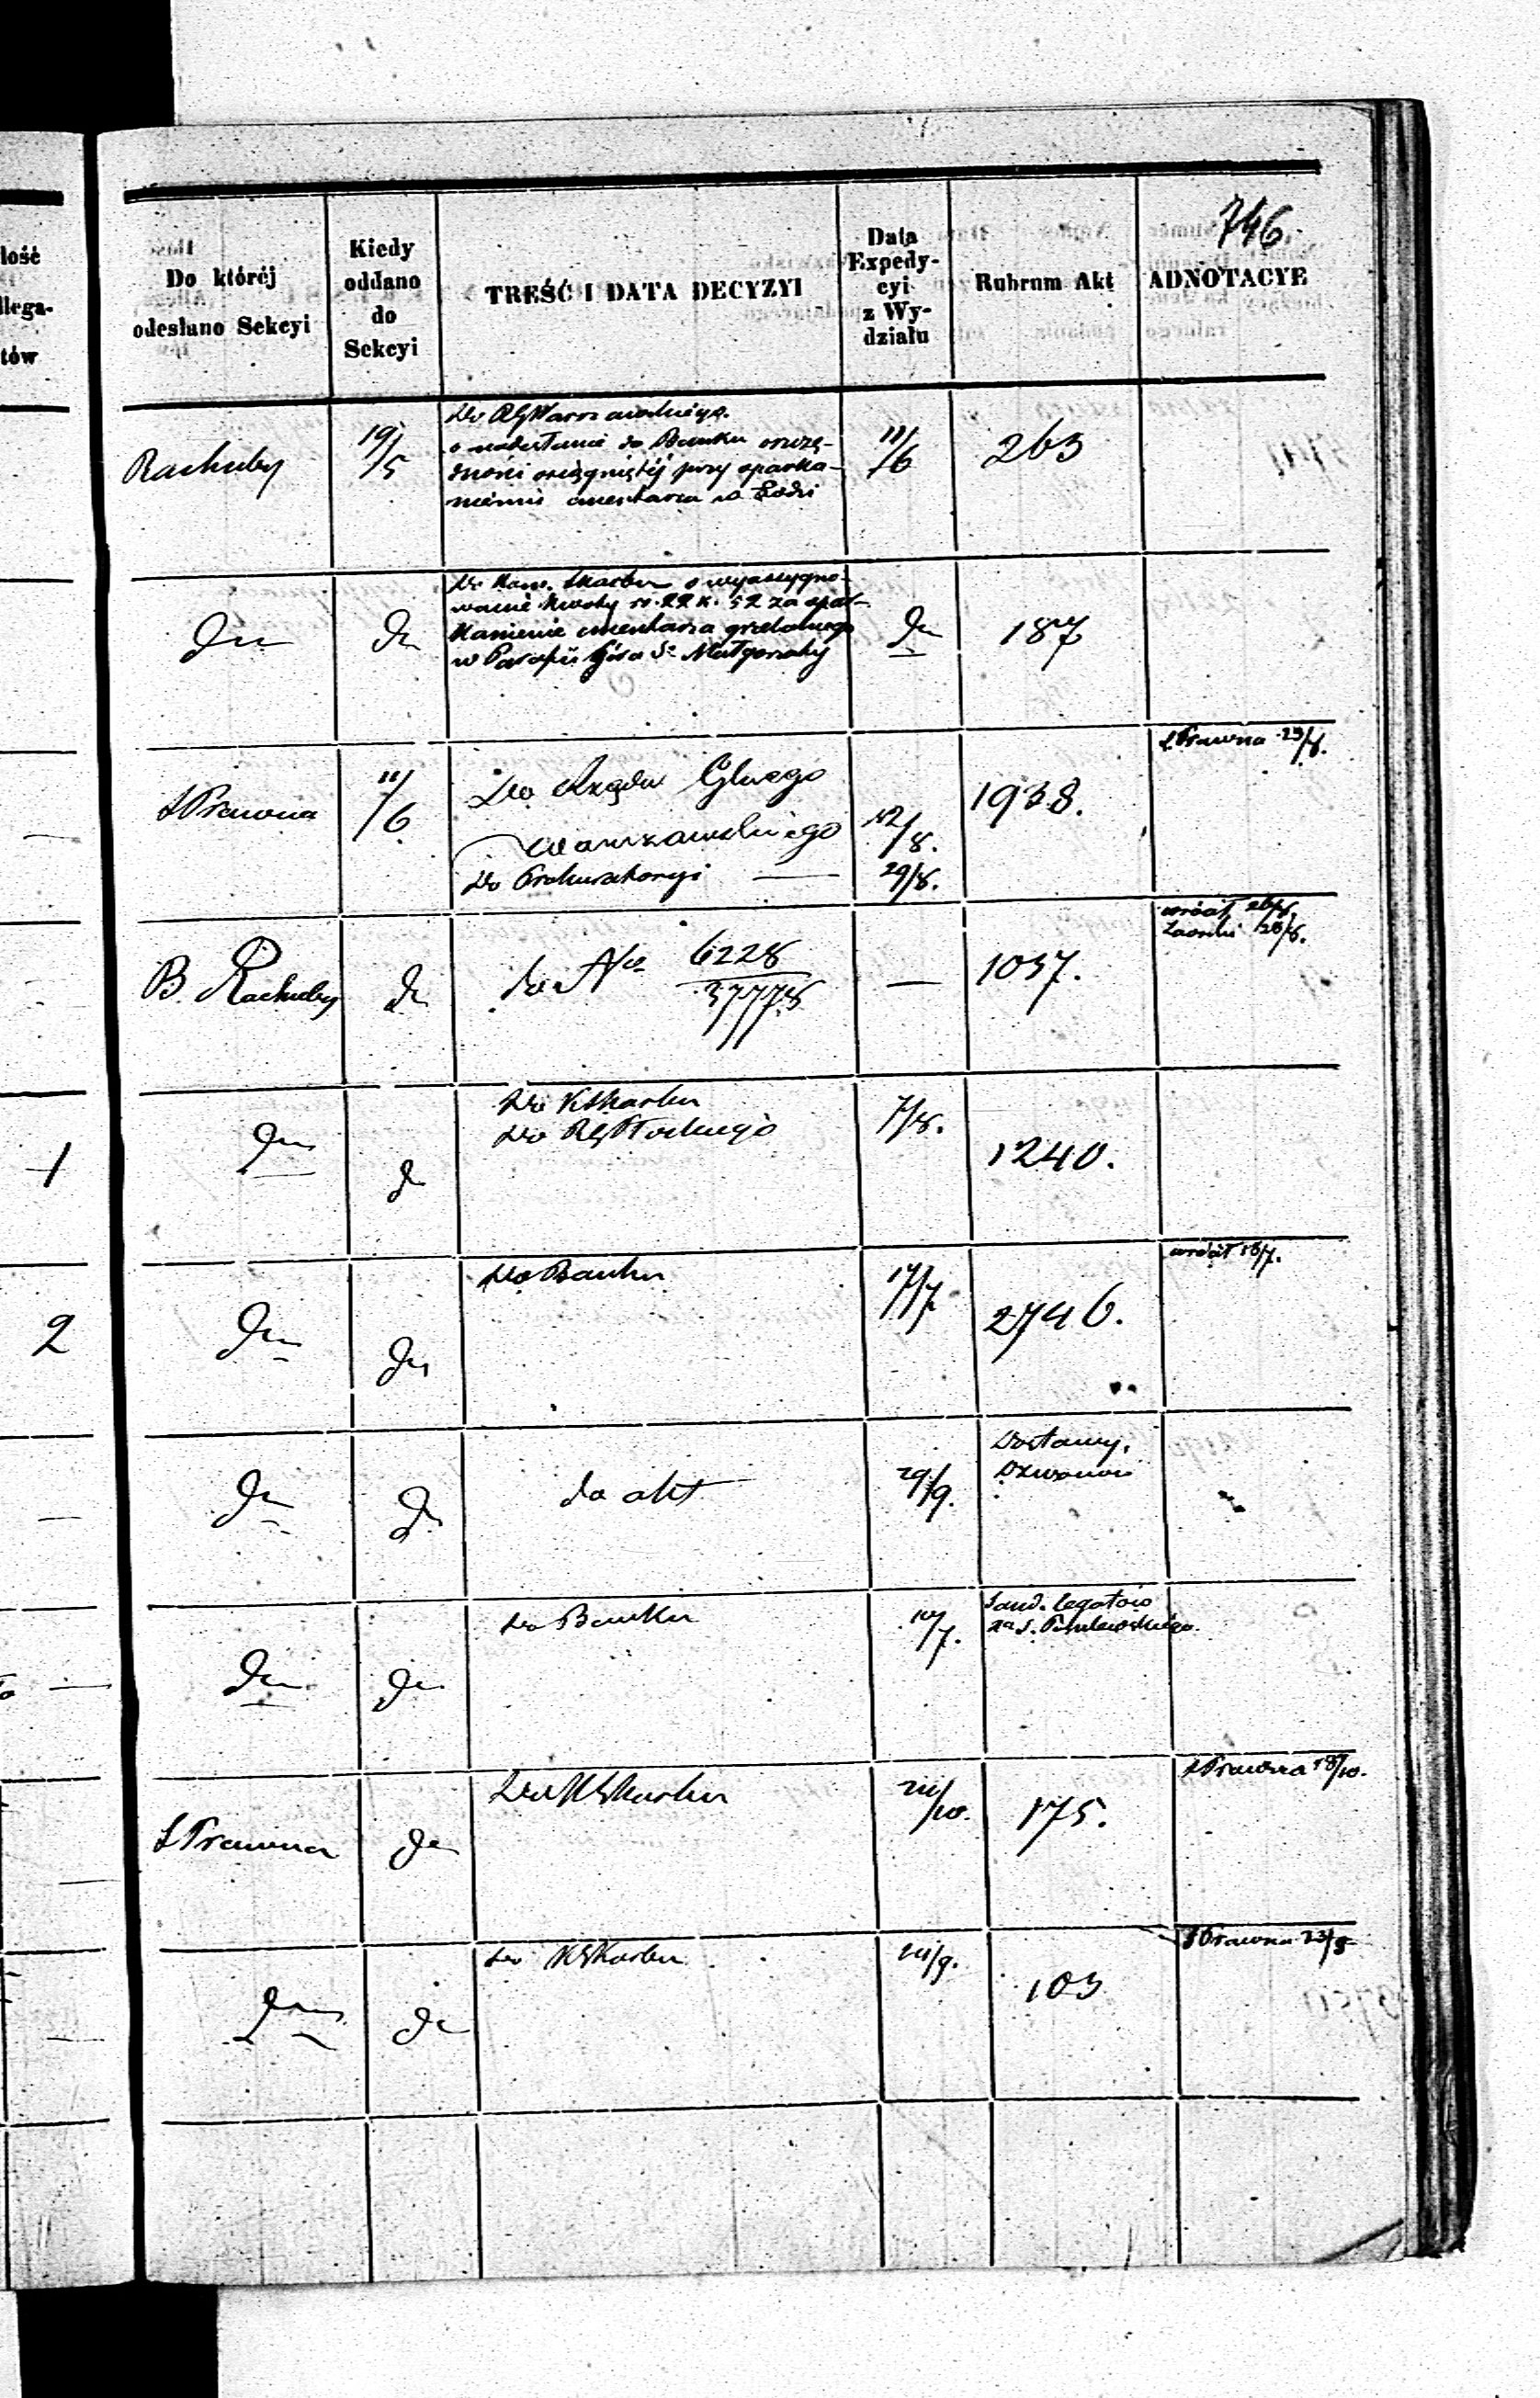 746.
lość
llega-
tów
Do któréj
odesłano Sekcyi
Kiedy
oddano
do
Sekcyi
TREŚĆ I DATA DECYZYI
Data
Expedy-
cyi
z Wy-
działu
Rubrum Akt
ADNOTACYE
Rachuby
19/5
Do RGWarszawskiego.
o nadesłanie do Banku oszczę-
dności osiągniętéj przy oparka-
nieniu cmentarza w Łodzi
11/6
263
Dto
Dto
Do Kom. Skarbu o wyassygno-
wanie kwoty rs. 22 k. 52 za opar-
kanienie cmentarza grzebalnego
w Parafii Góra Sej Małgorzaty
Dto
187
S Prawna
11/6
Do Rządu Glnego
Warszawskiego
Do Prokuratoryi
12/8.
29/8.
1938.
S Prawna 29/8.
B. Rachuby
Dto
do No 6228
37778
—
1037.
wrócił 26/8.
28/8.
1
Dto
Dto
Do KSkarbu
Do RGPłockiego
7/8.
1240.
2
Dto
Dto
Do Banku
17/7
2746.
wrócił 18/7.
Dto
Dto
do akt
29/9.
Dostawy,
Dzwonów
Dto
Dto
Do Banku
10/7.
Sand. legatów
S Prawna
Dto
Do KSkarbu
/10.
175.
S Prawna 18/10.
Dto
Dto
Do KSkarbu
/9.
103
S Prawna 23/8